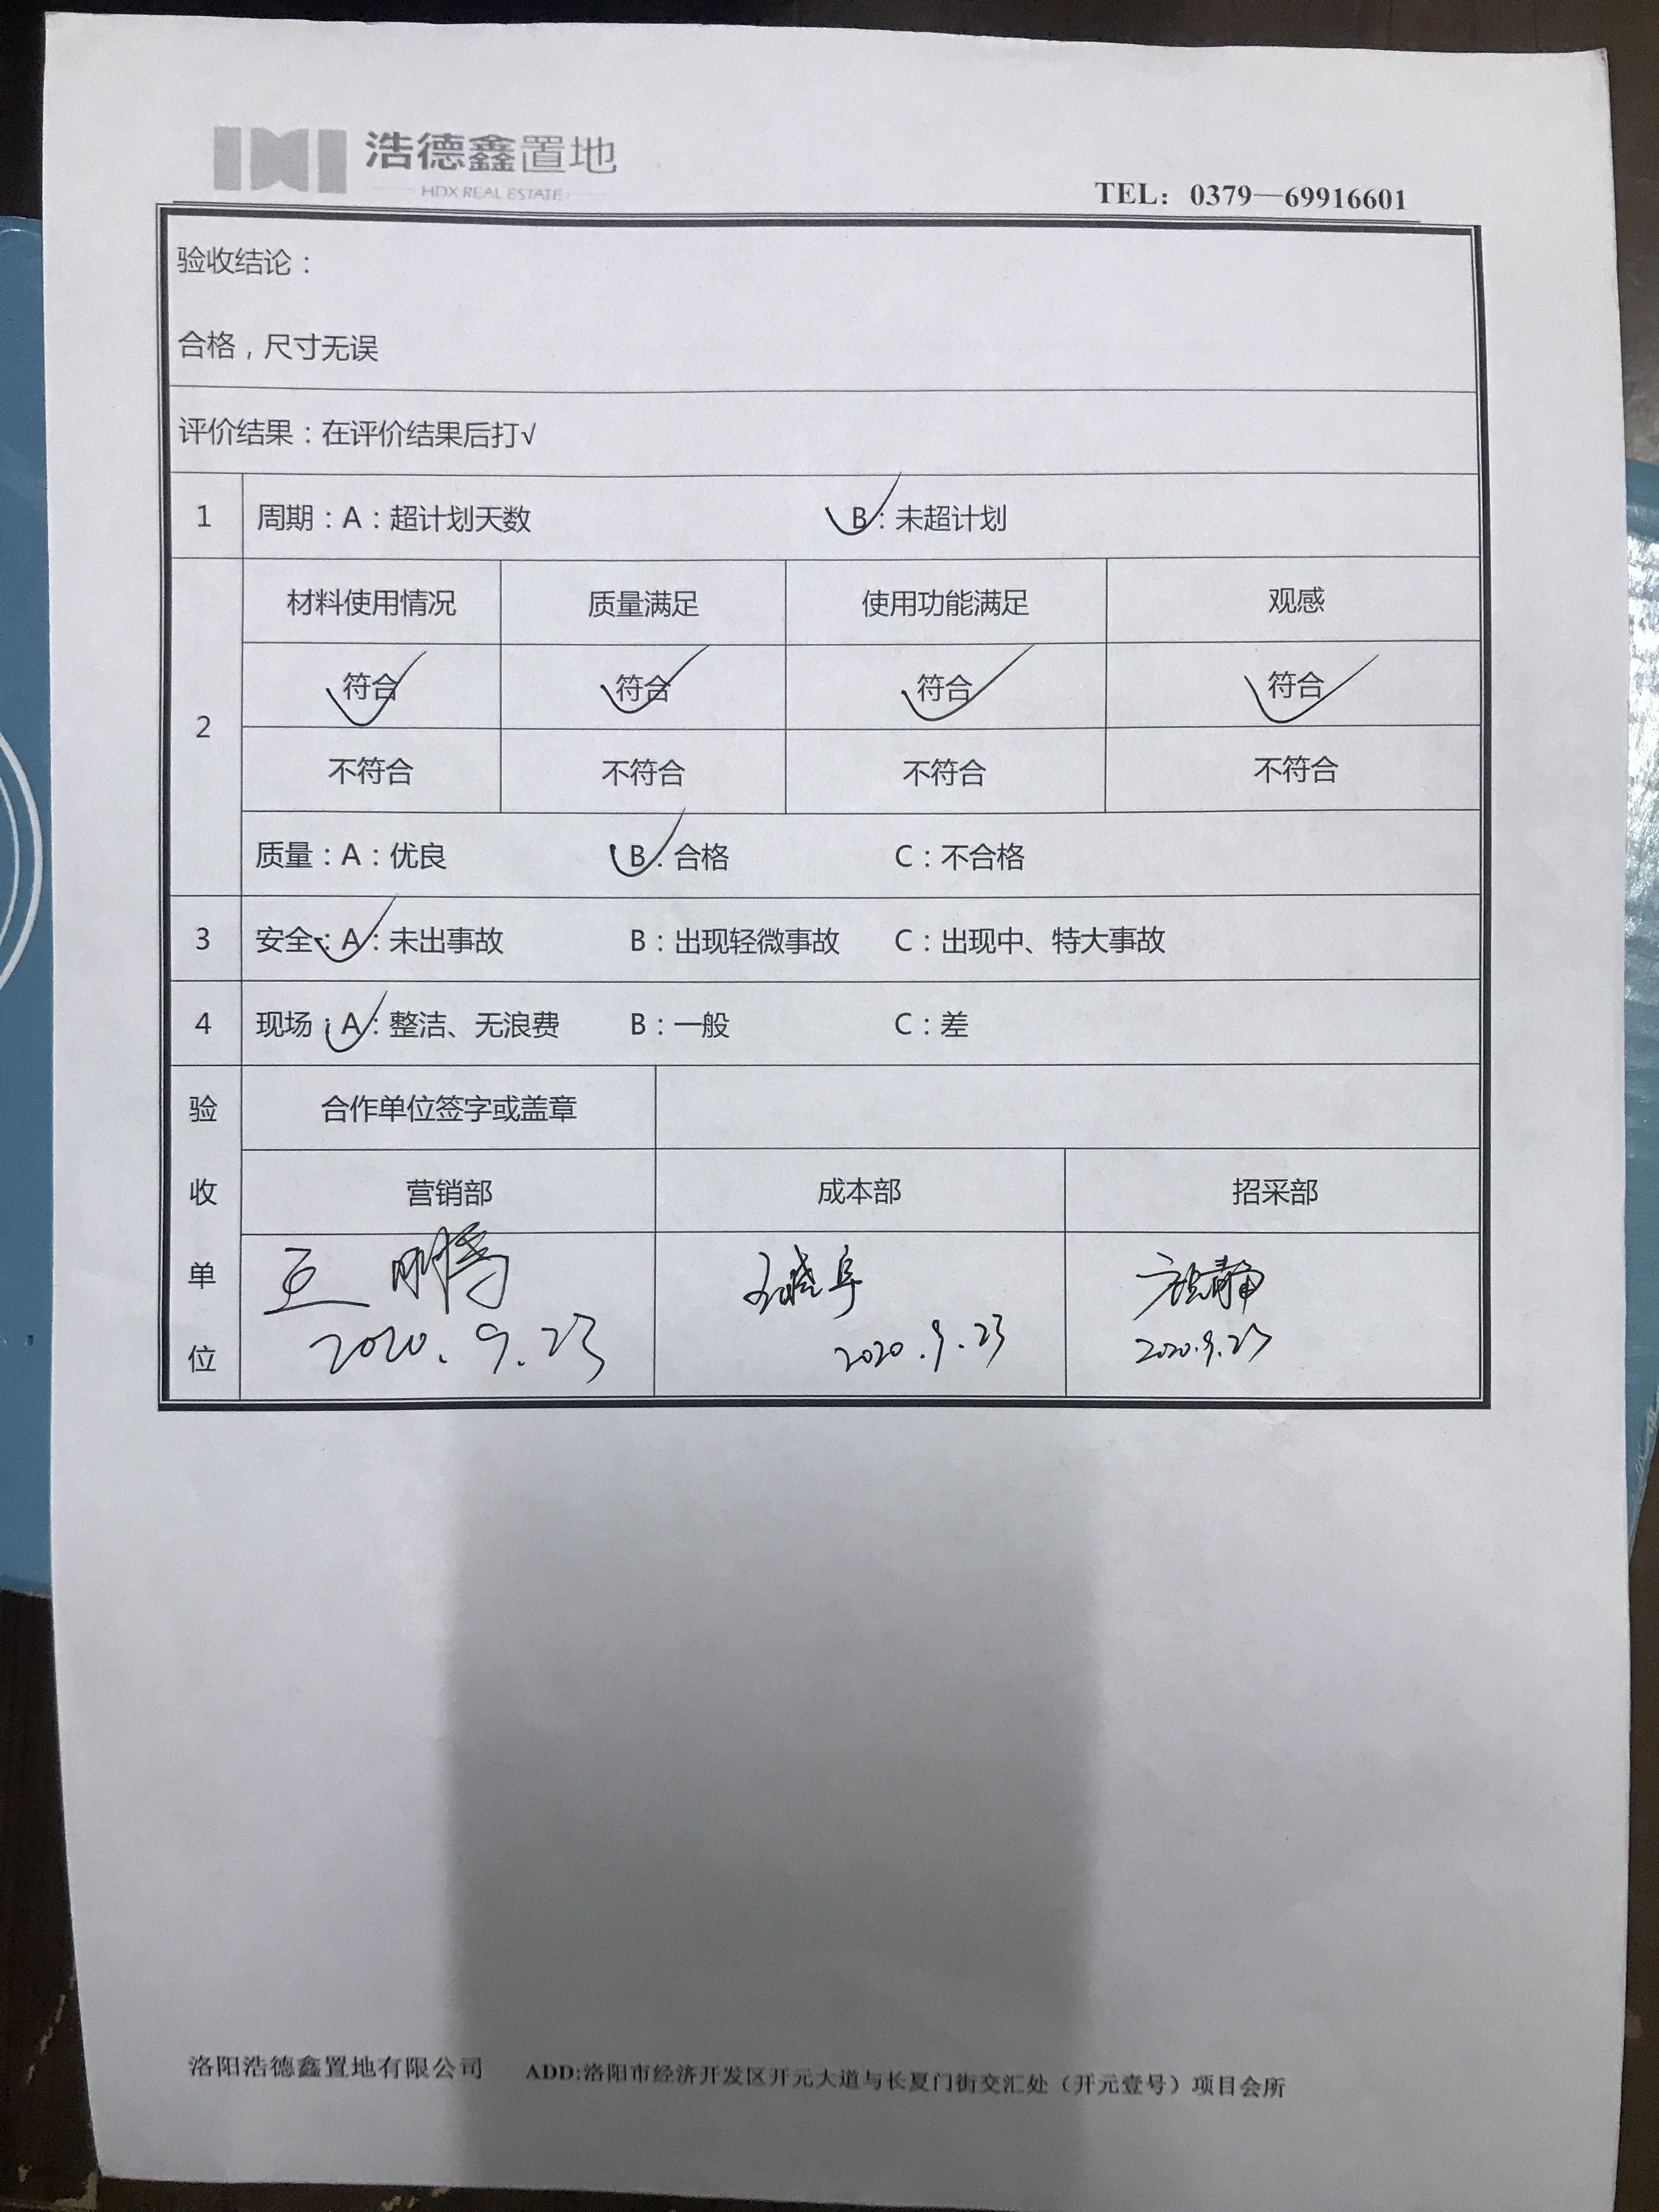 浩德鑫置地
HDX REAL ESTATE
TEL：0379—69916601
验收结论：
合格，尺寸无误
评价结果：在评价结果后打√
1 周期：A：超计划天数 B：未超计划
材料使用情况 质量满足 使用功能满足 观感
符合 符合 符合 符合
2
不符合 不符合 不符合 不符合
质量：A：优良 B：合格 C：不合格
3 安全：A：未出事故 B：出现轻微事故 C：出现中、特大事故
4 现场：A：整洁、无浪费 B：一般 C：差
验收单位
合作单位签字或盖章
营销部 成本部 招采部
王鹏
2020.9.23 2020.9.23 2020.9.23
洛阳浩德鑫置地有限公司 ADD:洛阳市经济开发区开元大道与长夏门街交汇处（开元壹号）项目会所